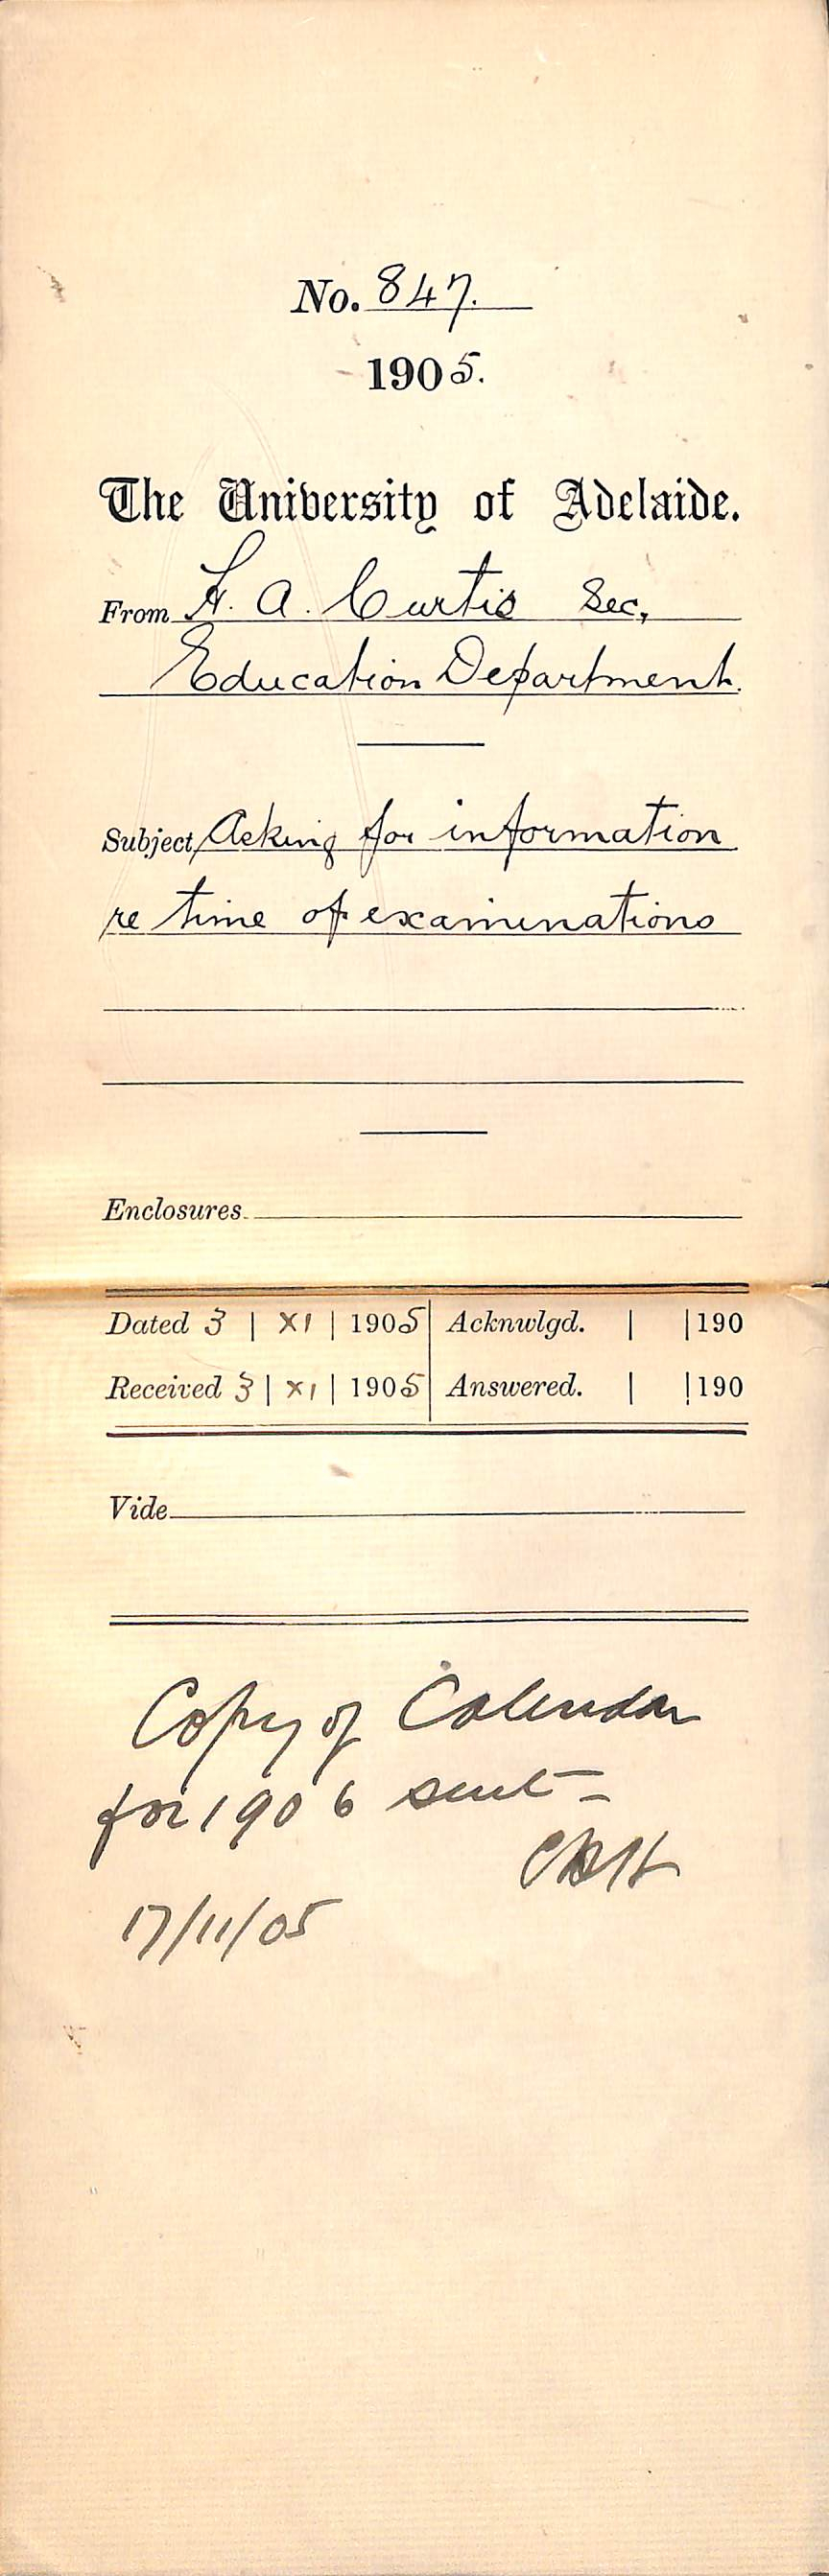 No. 847.
1905.
The University of Adelaide.
From H. A. Curtis Sec,
Education Department.
Subject, Asking for information
re time of examinations
Enclosures
Dated 3 | XI | 1905 Acknwlgd. | | 190
Received 3 | XI | 1905 Answered. | | 190
Vide
Copy of Calendar
for 1906 sent –
CRH
17/11/05